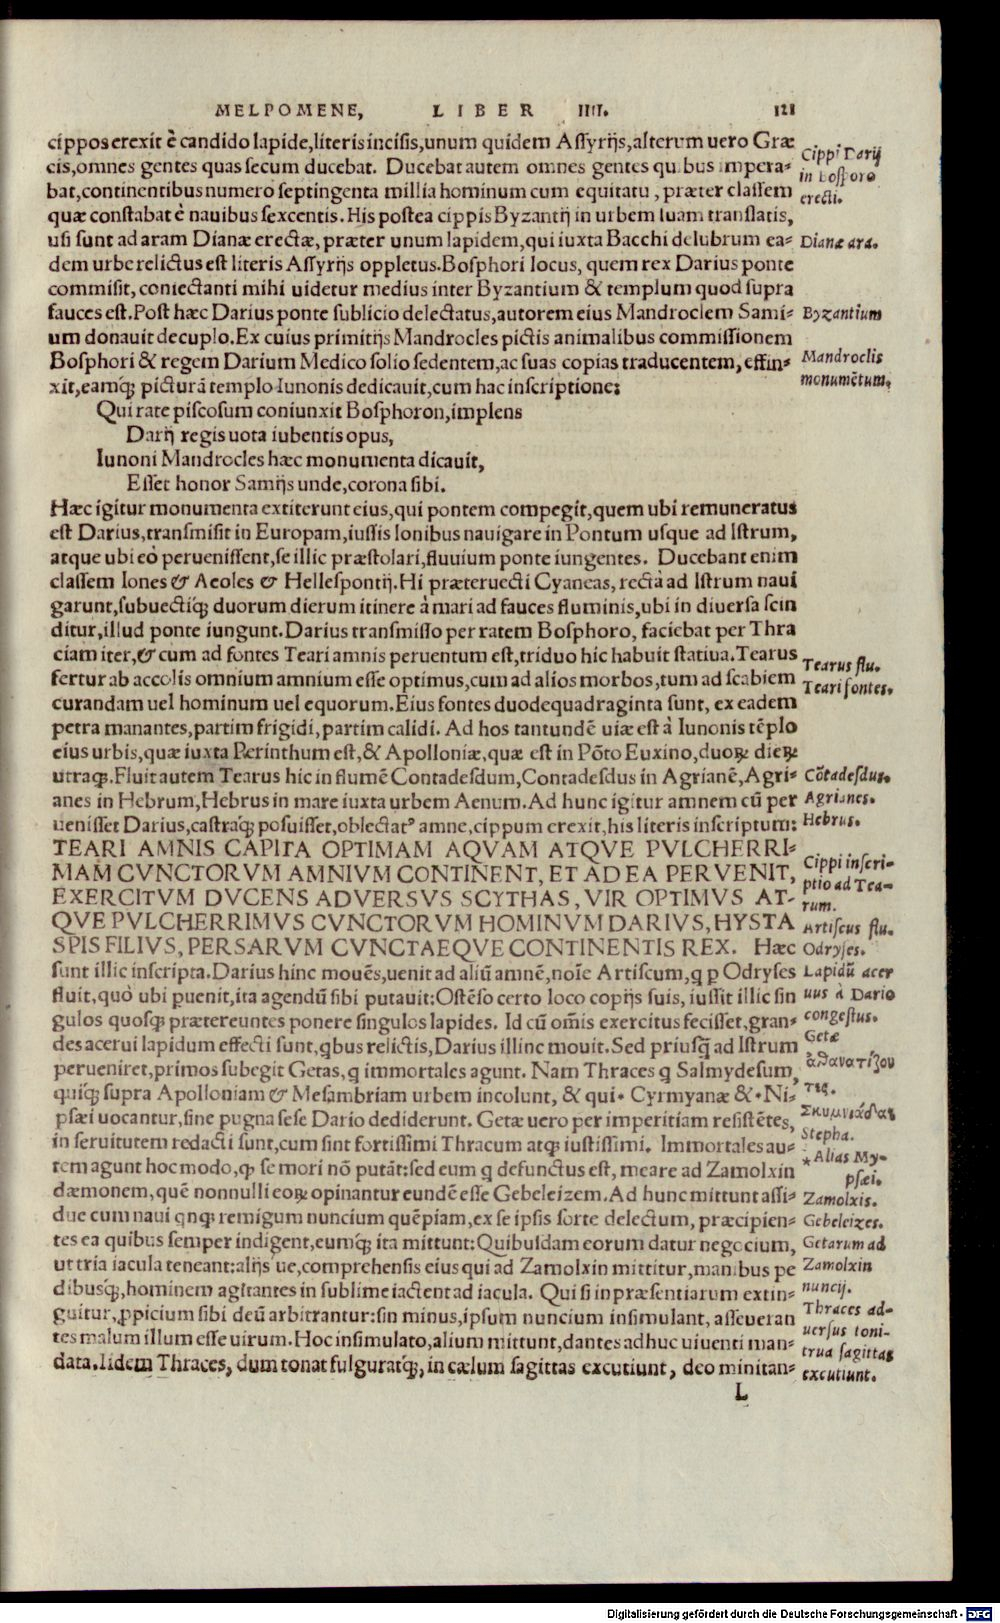 MELPOMENE, LIBER IIII. 121
cippos erexit è candido lapide, literis incisis, unum quidem Assyrijs, alterum uero Græ
cis, omnes gentes quas secum ducebat. Ducebat autem omnes gentes quibus impera-
bat, continentibus numero septingenta millia hominum cum equitatu, præter classem
quæ constabat è nauibus sexcentis. His postea cippis Byzantij in urbem suam translatis,
usi sunt ad aram Dianæ erectæ, præter unum lapidem, qui iuxta Bacchi delubrum ea-
dem urbe relictus est literis Assyrijs oppletus. Bosphori locus, quem rex Darius ponte
commisit, coniectanti mihi uidetur medius inter Byzantium & templum quod supra
fauces est. Post hæc Darius ponte sublicio delectatus, autorem eius Mandroclem Sami-
um donauit decuplo. Ex cuius primitijs Mandrocles pictis animalibus commissionem
Bosphori & regem Darium Medico solio sedentem, ac suas copias traducentem, effin-
xit, eamq́ꝫ picturā templo Iunonis dedicauit, cum hac inscriptione:
Qui rate piscosum coniunxit Bosphoron, implens
Darij regis uota iubentis opus,
Iunoni Mandrocles hæc monumenta dicauit,
Esset honor Samijs unde, corona sibi.
Hæc igitur monumenta extiterunt eius, qui pontem compegit, quem ubi remuneratus
est Darius, transmisit in Europam, iussis Ionibus nauigare in Pontum usque ad Istrum,
atque ubi eò peruenissent, se illic præstolari, fluuium ponte iungentes. Ducebant enim
classem Iones & Aeoles & Hellespontij. Hi præteruecti Cyaneas, rectà ad Istrum naui
garunt, subuectiq́ꝫ duorum dierum itinere à mari ad fauces fluminis, ubi in diuersa scin
ditur, illud ponte iungunt. Darius transmisso per ratem Bosphoro, faciebat per Thra
ciam iter, & cum ad fontes Teari amnis peruentum est, triduo hic habuit statiua. Tearus
fertur ab accolis omnium amnium esse optimus, cum ad alios morbos, tum ad scabiem
curandam uel hominum uel equorum. Eius fontes duodequadraginta sunt, ex eadem
petra manantes, partim frigidi, partim calidi. Ad hos tantundē uiæ est à Iunonis tēplo
eius urbis, quæ iuxta Perinthum est, & Apolloniæ, quæ est in Pōto Euxino, duoꝝ dieꝝ
utraqꝫ. Fluit autem Tearus hic in flumē Contadesdum, Contadesdus in Agrianē, Agri-
anes in Hebrum, Hebrus in mare iuxta urbem Aenum. Ad hunc igitur amnem cū per
uenisset Darius, castraq́ꝫ posuisset, oblectatꝰ amne, cippum erexit, his literis inscriptum:
TEARI AMNIS CAPITA OPTIMAM AQVAM ATQVE PVLCHERRI-
MAM CVNCTORVM AMNIVM CONTINENT, ET AD EA PERVENIT,
EXERCITVM DVCENS ADVERSVS SCYTHAS, VIR OPTIMVS AT-
QVE PVLCHERRIMVS CVNCTORVM HOMINVM DARIVS, HYSTA
SPIS FILIVS, PERSARVM CVNCTAEQVE CONTINENTIS REX. Hæc
sunt illic inscripta. Darius hinc mouēs, uenit ad aliū amnē, noīe Artiscum, q ꝑ Odryses
fluit, quò ubi ꝑuenit, ita agendū sibi putauit: Ostēso certo loco copijs suis, iussit illic sin
gulos quosqꝫ prætereuntes ponere singulos lapides. Id cū om̄is exercitus fecisset, gran-
des acerui lapidum effecti sunt, qbus relictis, Darius illinc mouit. Sed priusq̄ ad Istrum
perueniret, primos subegit Getas, q immortales agunt. Nam Thraces q Salmydesum,
quiq́ꝫ supra Apolloniam & Mesambriam urbem incolunt, & qui * Cyrmyanæ & * Ni-
psæi uocantur, sine pugna sese Dario dediderunt. Getæ uero per imperitiam resistētes,
in seruitutem redacti sunt, cum sint fortissimi Thracum atqꝫ iustissimi. Immortales au-
tem agunt hoc modo, qꝫ se mori nō putāt: sed eum q defunctus est, meare ad Zamolxin
dæmonem, quē nonnulli eoꝝ opinantur eundē esse Gebeleizem. Ad hunc mittunt assi-
due cum naui qnqꝫ remigum nuncium quēpiam, ex se ipsis sorte delectum, præcipien-
tes ea quibus semper indigent, eumq́ꝫ ita mittunt: Quibusdam eorum datur negocium,
ut tria iacula teneant: alijs ue, comprehensis eius qui ad Zamolxin mittitur, manibus pe
dibusq́ꝫ, hominem agitantes in sublime iactent ad iacula. Qui si in præsentiarum extin-
guitur, ꝓpicium sibi deū arbitrantur: sin minus, ipsum nuncium insimulant, asseueran
tes malum illum esse uirum. Hoc insimulato, alium mittunt, dantes adhuc uiuenti man-
data. Iidem Thraces, dum tonat fulguratq́ꝫ, in cælum sagittas excutiunt, deo minitan-
L
Cippi Darij
in Bosporo
erecti.
Dianæ ara.
Byzantium
Mandroclis
monumētum.
Tearus flu.
Teari fontes.
Cōtadesdus.
Agrianes.
Hebrus.
Cippi inscri-
ptio ad Tea-
rum.
Artiscus flu.
Odryses.
Lapidū acer
uus à Dario
congestus.
Getæ
ἀθανατίζον
τες.
Σκυμνιάδαι
Stepha.
* Alias My-
psæi.
Zamolxis.
Gebeleizes.
Getarum ad
Zamolxin
nuncij.
Thraces ad-
uersus toni-
trua sagittas
excutiunt.
Digitalisierung gefördert durch die Deutsche Forschungsgemeinschaft - DFG